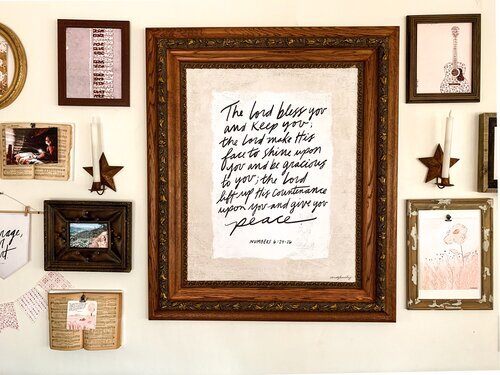 The Lord bless you
and keep you;
the Lord make His
face to shine upon
you and be gracious
to you; the Lord
lift up His countenance
upon you and give you
peace
NUMBERS 6:24-26